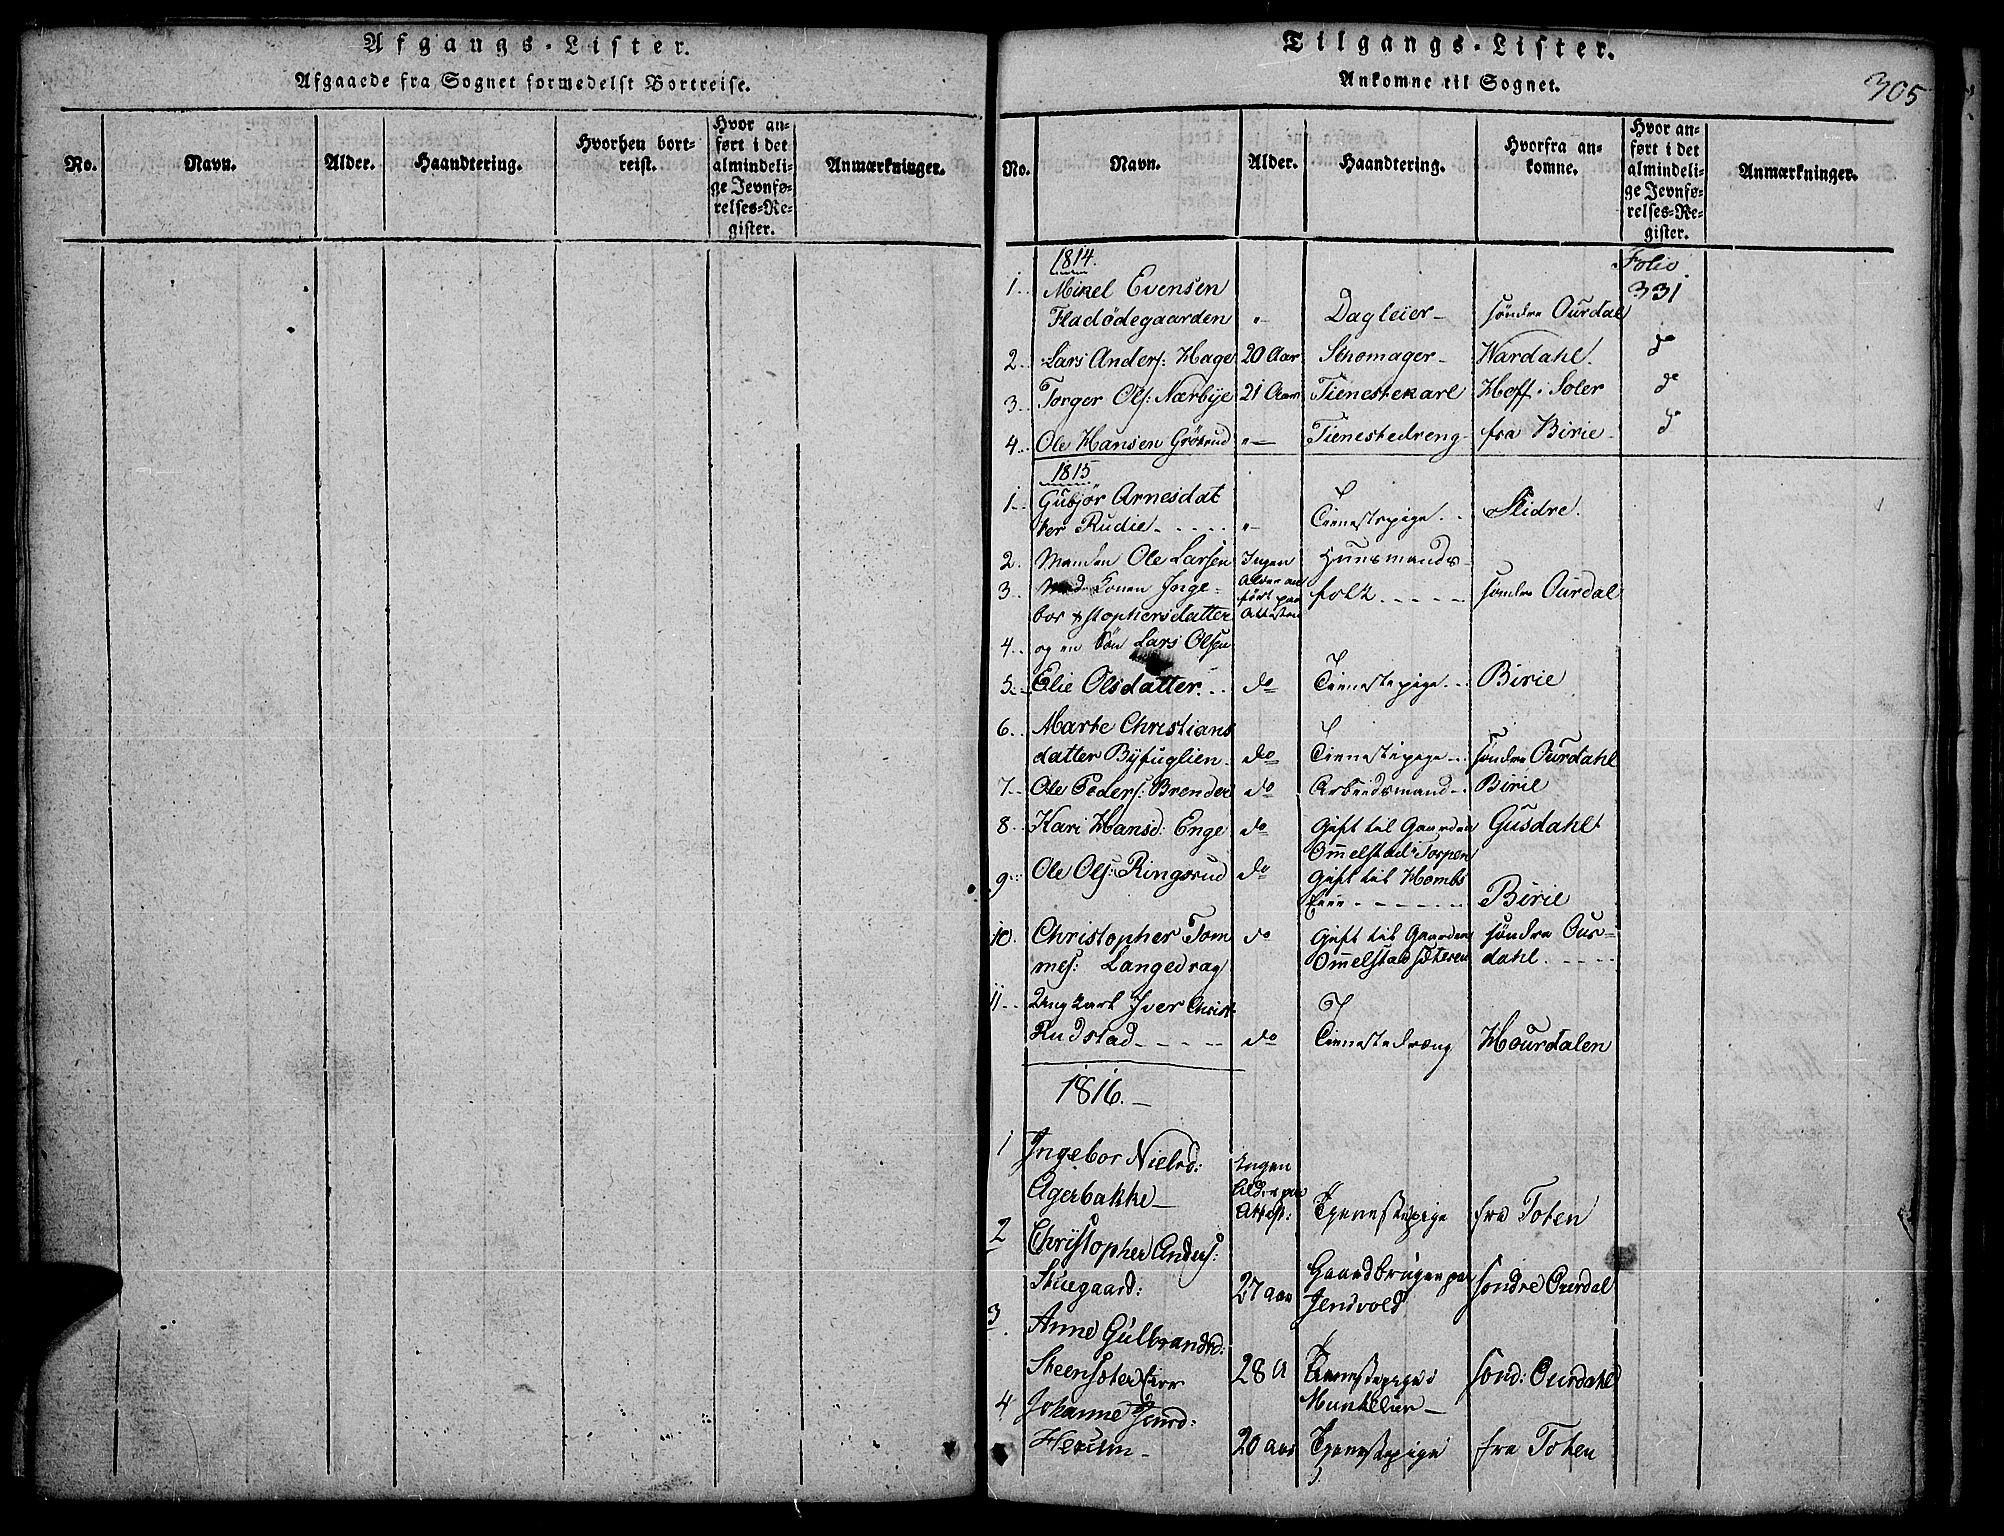 Afgangs-Lister.
Afgaaede fra Sognet formedelst Bortreise.
No.
Navn.
Alder.
Haandtering.
Hvorhen bort-
reist.
Hvor an-
ført i det
almindeli-
ge Jevnfø-
relses-Re-
gister.
Anmærkninger.
Tilgangs-Lister.
Ankomne til Sognet.
305
No.
Navn.
Alder.
Haandtering.
Hvorfra an-
komne.
Hvor an-
ført i det
almindeli-
ge Jevnfø-
relses-Re-
gister.
Anmærkninger.
1814. Folio.
1. Mikel Evensen 331
Fladødegaarden " Dagleier søndre Ourdal
2. Lars Anders: Hage 20 Aar Schomager Wardahl. do
3. Torger Ols: Nærbye 21 Aar Tienestekarl Hoff i Soler do
4. Ole Hansen Grøterud " Tienestedreng fra Birie do
1815
1. Gubjør Arnesdat
ter Rudie " Tienestepige Slidre.
2. Manden Ole Larsen Ingen Huusmands
3. Med Konen Inge- Alder an folk søndre Ourdal
ført paa
bor Kstophersdatter Attesten
4. og en Søn Lars Olsen
5. Elie Olsdatter do Tienestepige Birie
6. Marte Christians
datter Byfuglien do Tienestepige søndre Ourdahl
7. Ole Peders: Brenden do Arbeidsmand Birie
8. Kari Hansd: Enge do Gift til Gaarden Gusdahl
Ommelstad i Torpen
9. Ole Ols: Ringsrud do Gift til Hombs
Eiee Birie
10. Christopher Tom do Gift til Gaarden søndre Our-
mes: Langedrag Ommelstad sæteren dahl.
11. Ung karl Iver Christ:
Rudstad do Tienestedræng Hourdalen
1816.
1 Ingebor Nielsd: Ingen
Alder paa
Agerbakke Attest: Tjenestepige fra Toten
2 Christopher Anders: Gaardbruger paa
Skuegaard: 27 aar Jendvold søndre Ourdal
3. Anne Gulbrandsd:
Steensæter Eie 28 A Tienestepige i sønd: Ourdahl
4 Johanne Joensd: Munklien
Herum 20 aar Tjenestepige fra Toten